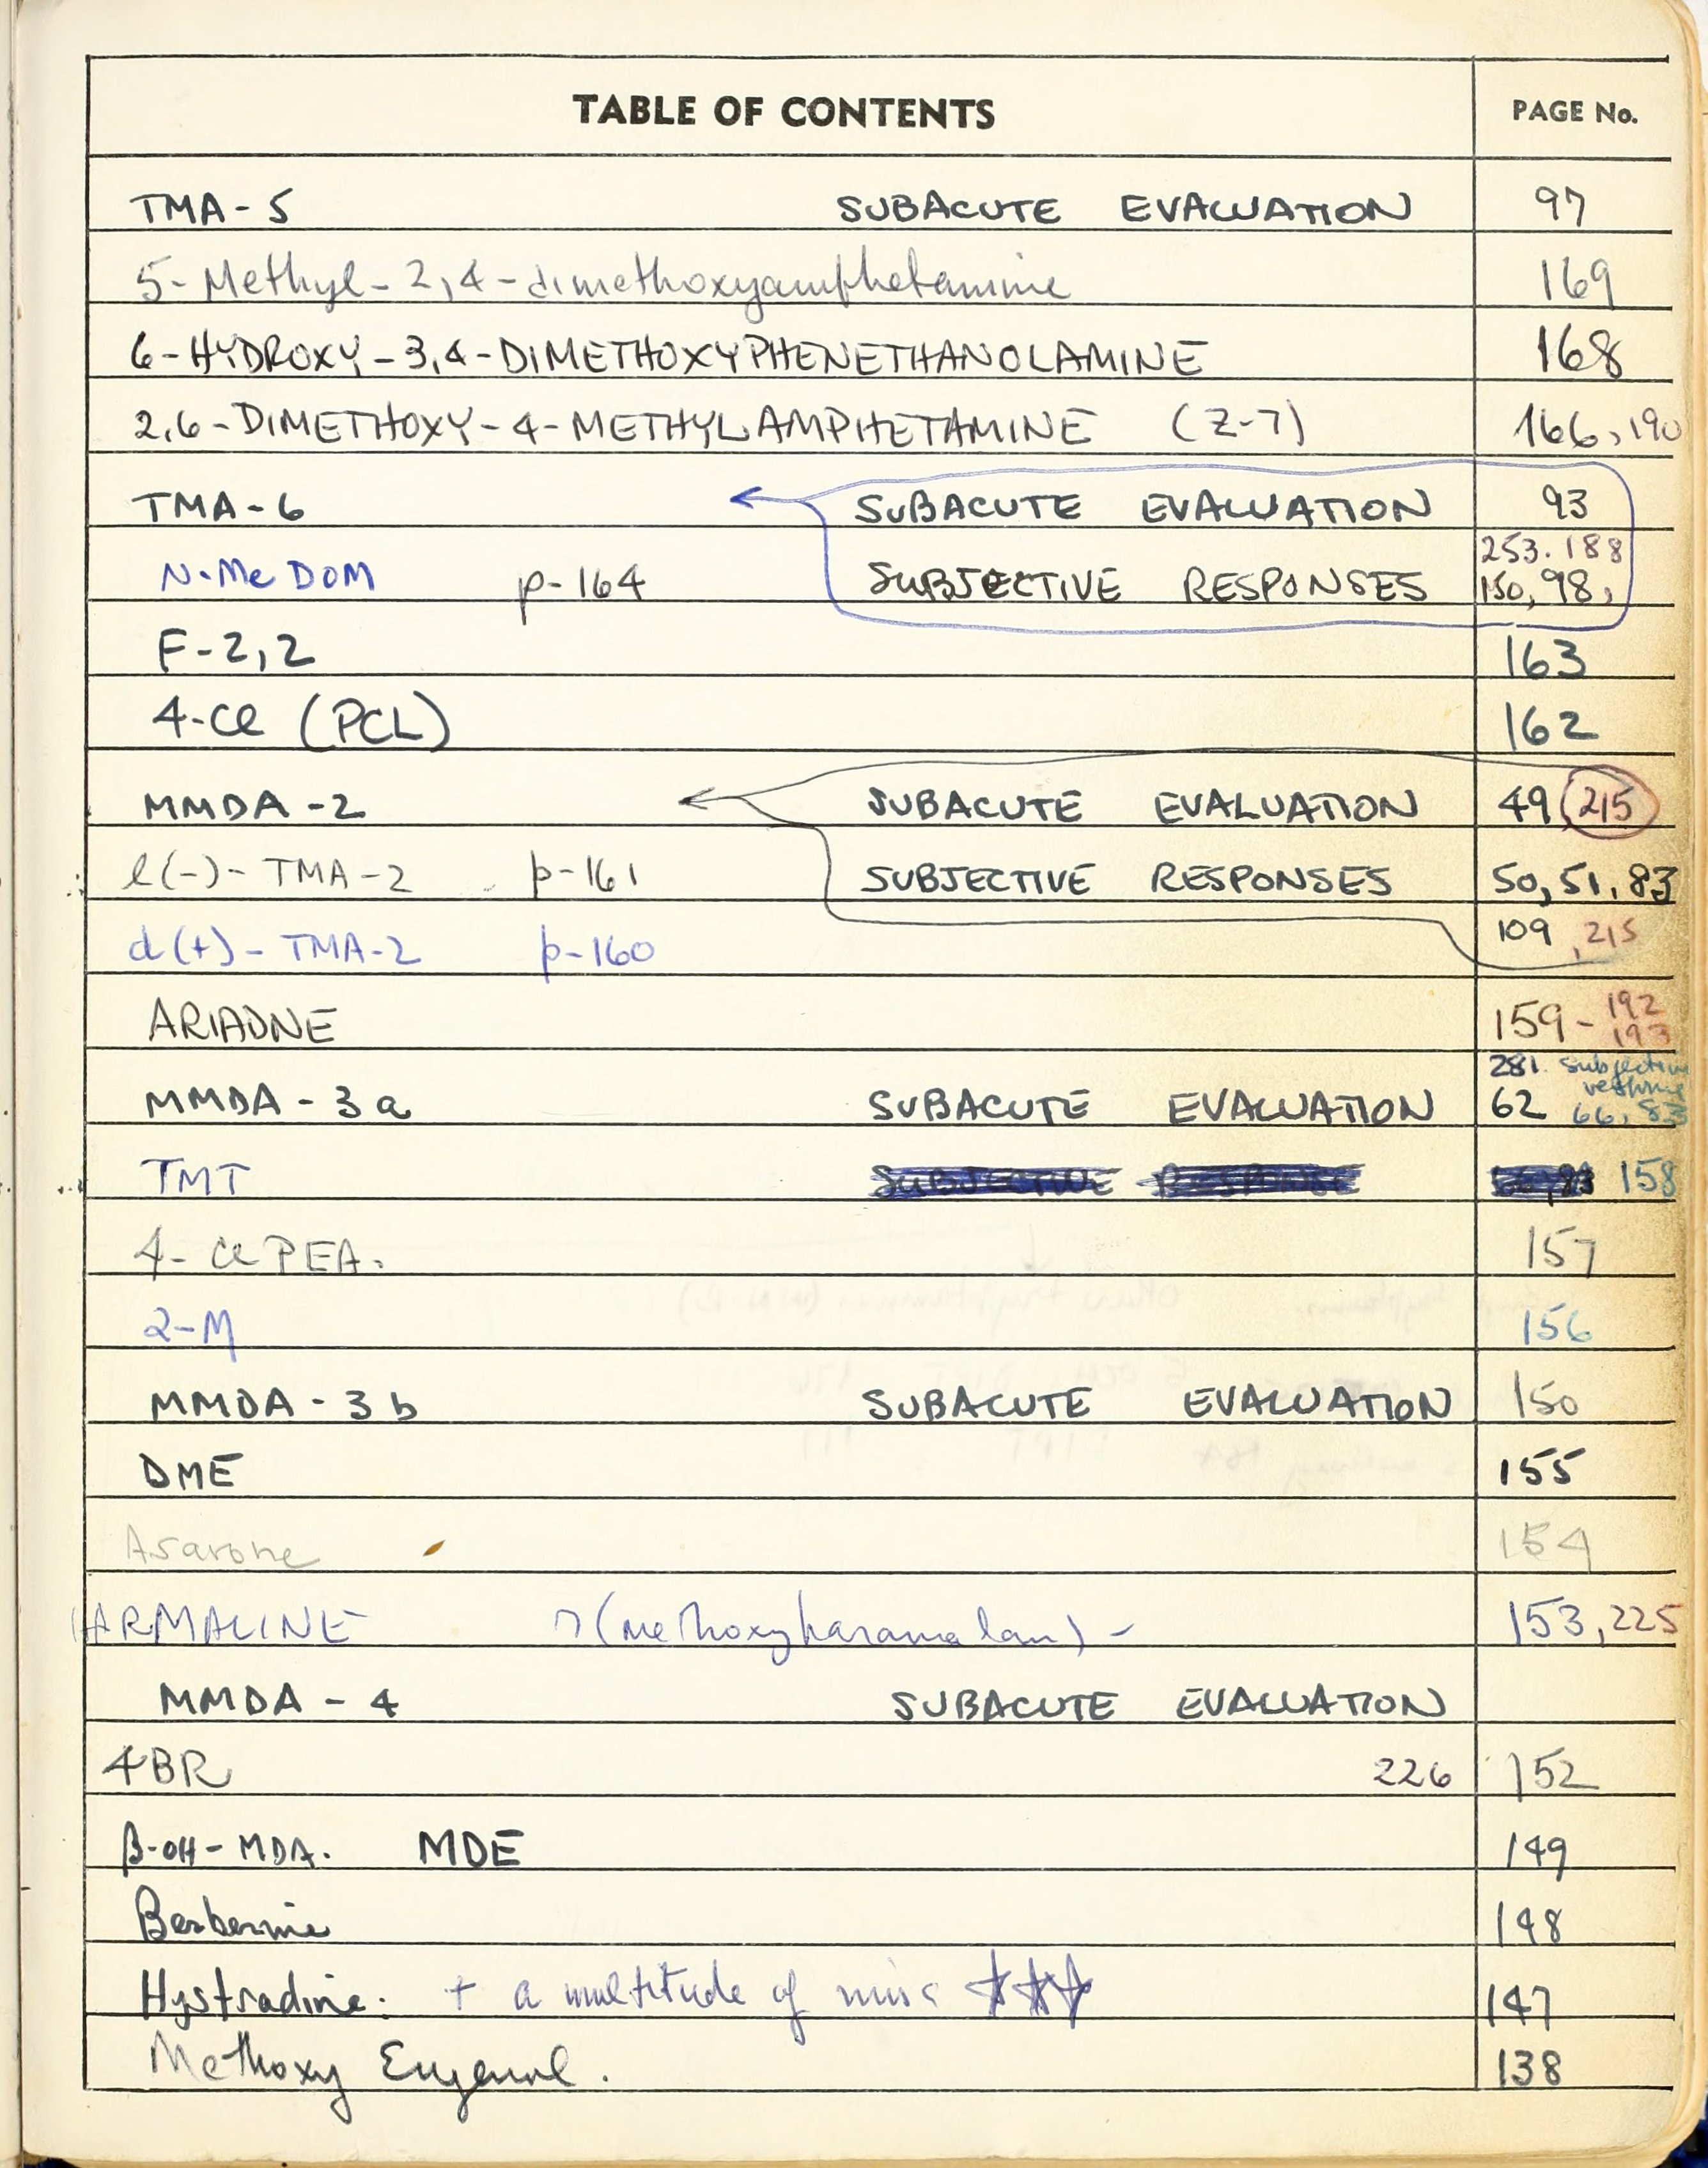 TABLE OF CONTENTS PAGE No.
TMA-5 SUBACUTE EVALUATION 97
5-Methyl-2,4-dimethoxyamphetamine 169
6-HYDROXY-3,4-DIMETHOXYPHENETHANOLAMINE 168
2,6-DIMETHOXY-4-METHYLAMPHETAMINE (Z-7) 166, 190
TMA-6 SUBACUTE EVALUATION 93
253. 188
N-Me DOM p-164 SUBJECTIVE RESPONSES 150, 98,
F-2,2 163
4-Cl (PCL) 162
MMDA-2 SUBACUTE EVALUATION 49 215
l(-)-TMA-2 p-161 SUBJECTIVE RESPONSES 50, 51, 83
d(+)-TMA-2 p-160 109, 215
ARIADNE 159 - 192
193
281. subjective
response
MMDA-3a SUBACUTE EVALUATION 62 66, 83
TMT SUBJECTIVE RESPONSE 158
4-Cl PEA. 157
2-M 156
MMDA-3b SUBACUTE EVALUATION 150
DME 155
Asarone 154
HARMALINE (methoxyharamalan) - 153, 225
MMDA-4 SUBACUTE EVALUATION
4BR 226 152
β-OH-MDA. MDE 149
Berberine 148
Hystradine. + a multitude of misc 147
Methoxy Eugenol. 138